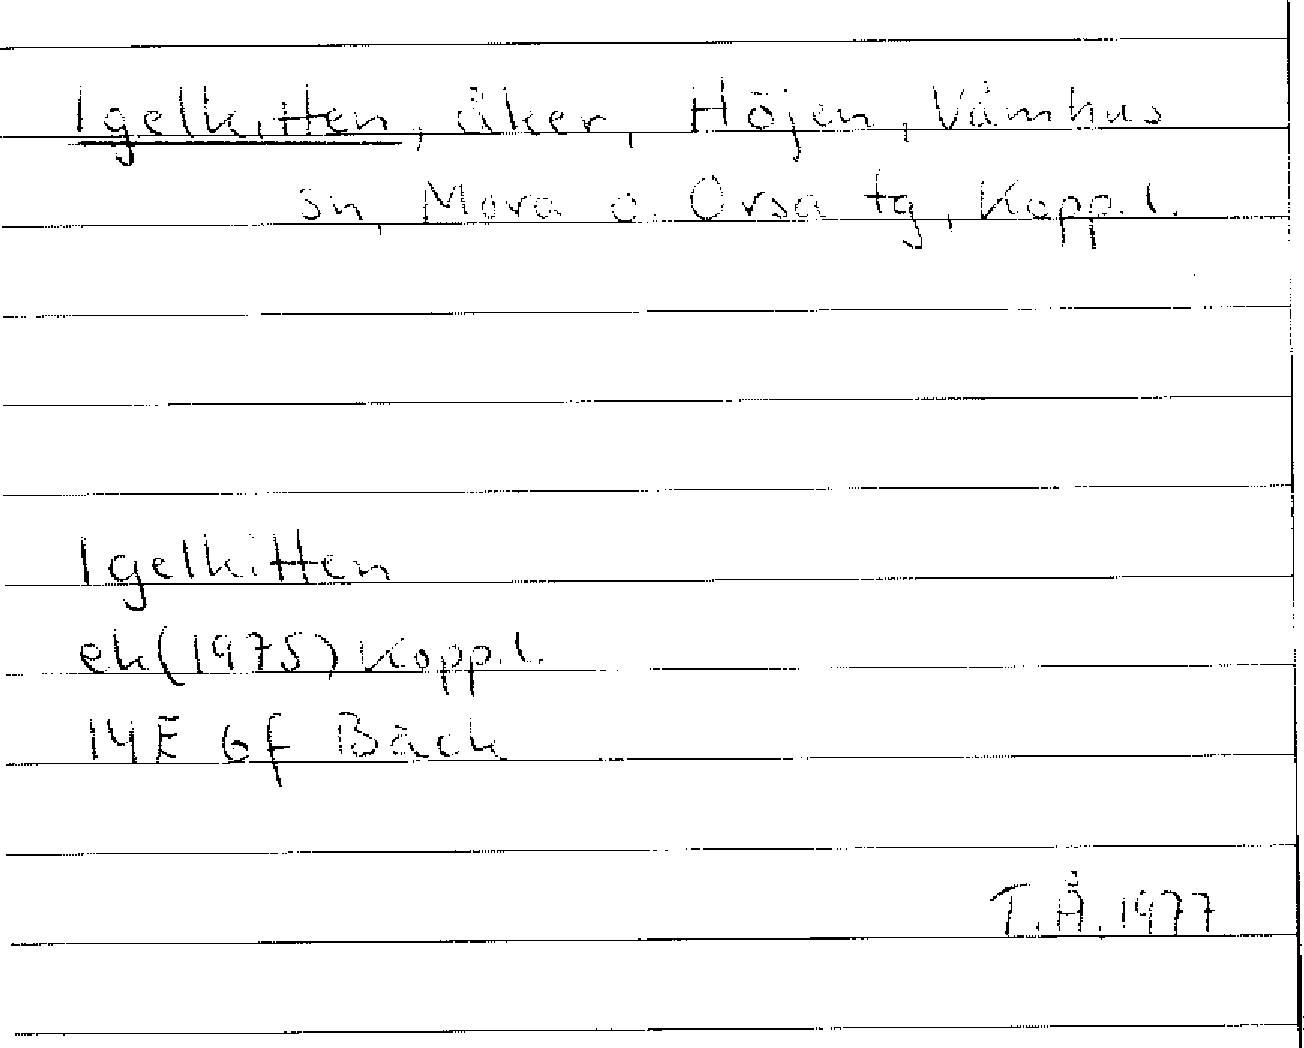 Igelkitten, åker, Höjen, Våmhus
sn, Mora o. Orsa tg, Kopp. l.
Igelkitten
ek (1975) Kopp. l.
14E 6f Bäck
T.Å. 1977